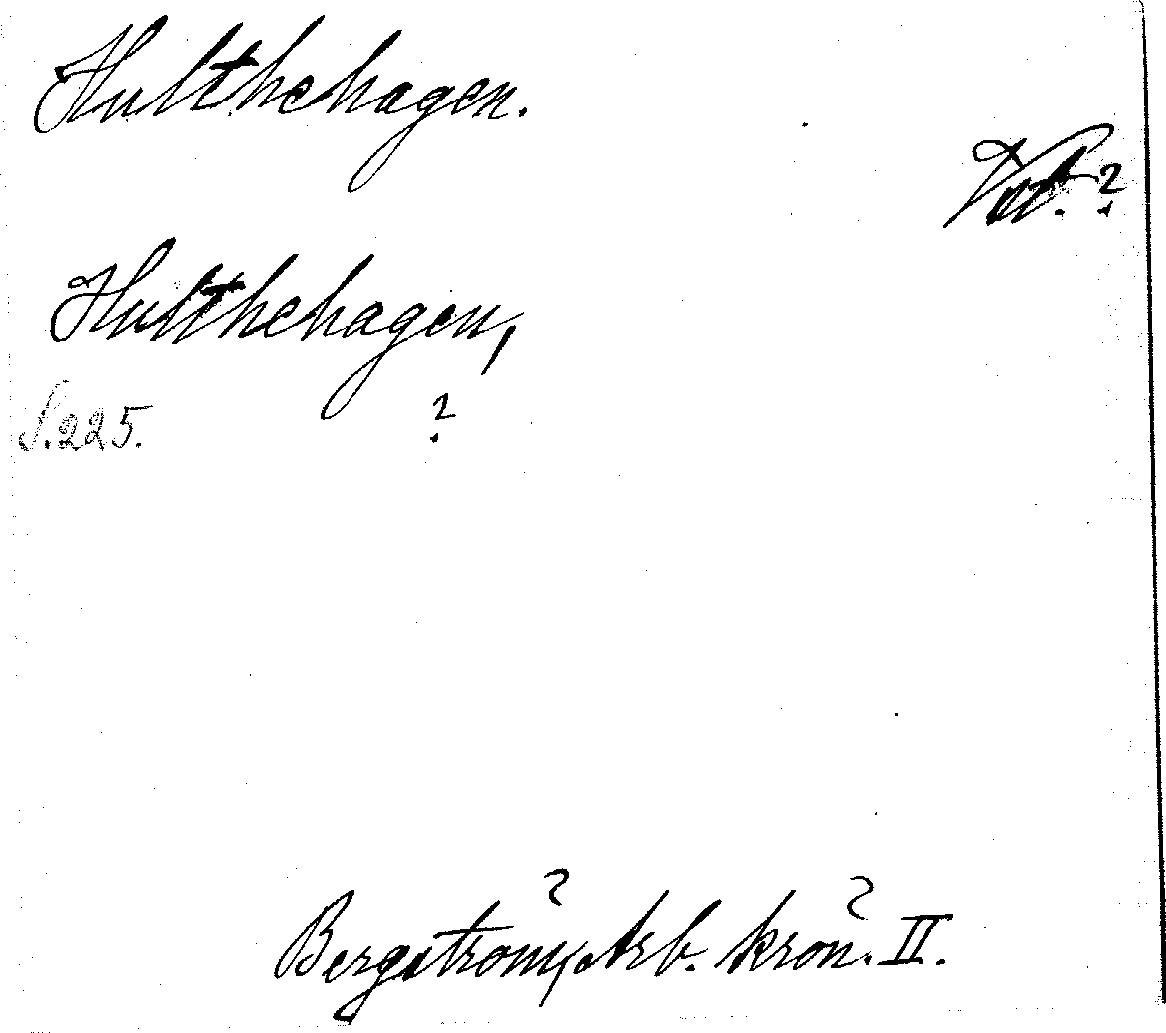 Hulthehagen.
Vet. ?
Hulthehagen,
S. 225. ?
Bergström, Arb. krön. II.